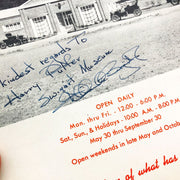 kindest regards to
Harry Pulfer
OPEN DAILY
Mon. thru Fri. - 12:00 - 5:00 P.M.
Sat., Sun., & Holidays - 10:00 A.M. - 8:00 P.M.
May 30 thru September 30
Open weekends in late May and October
of what has